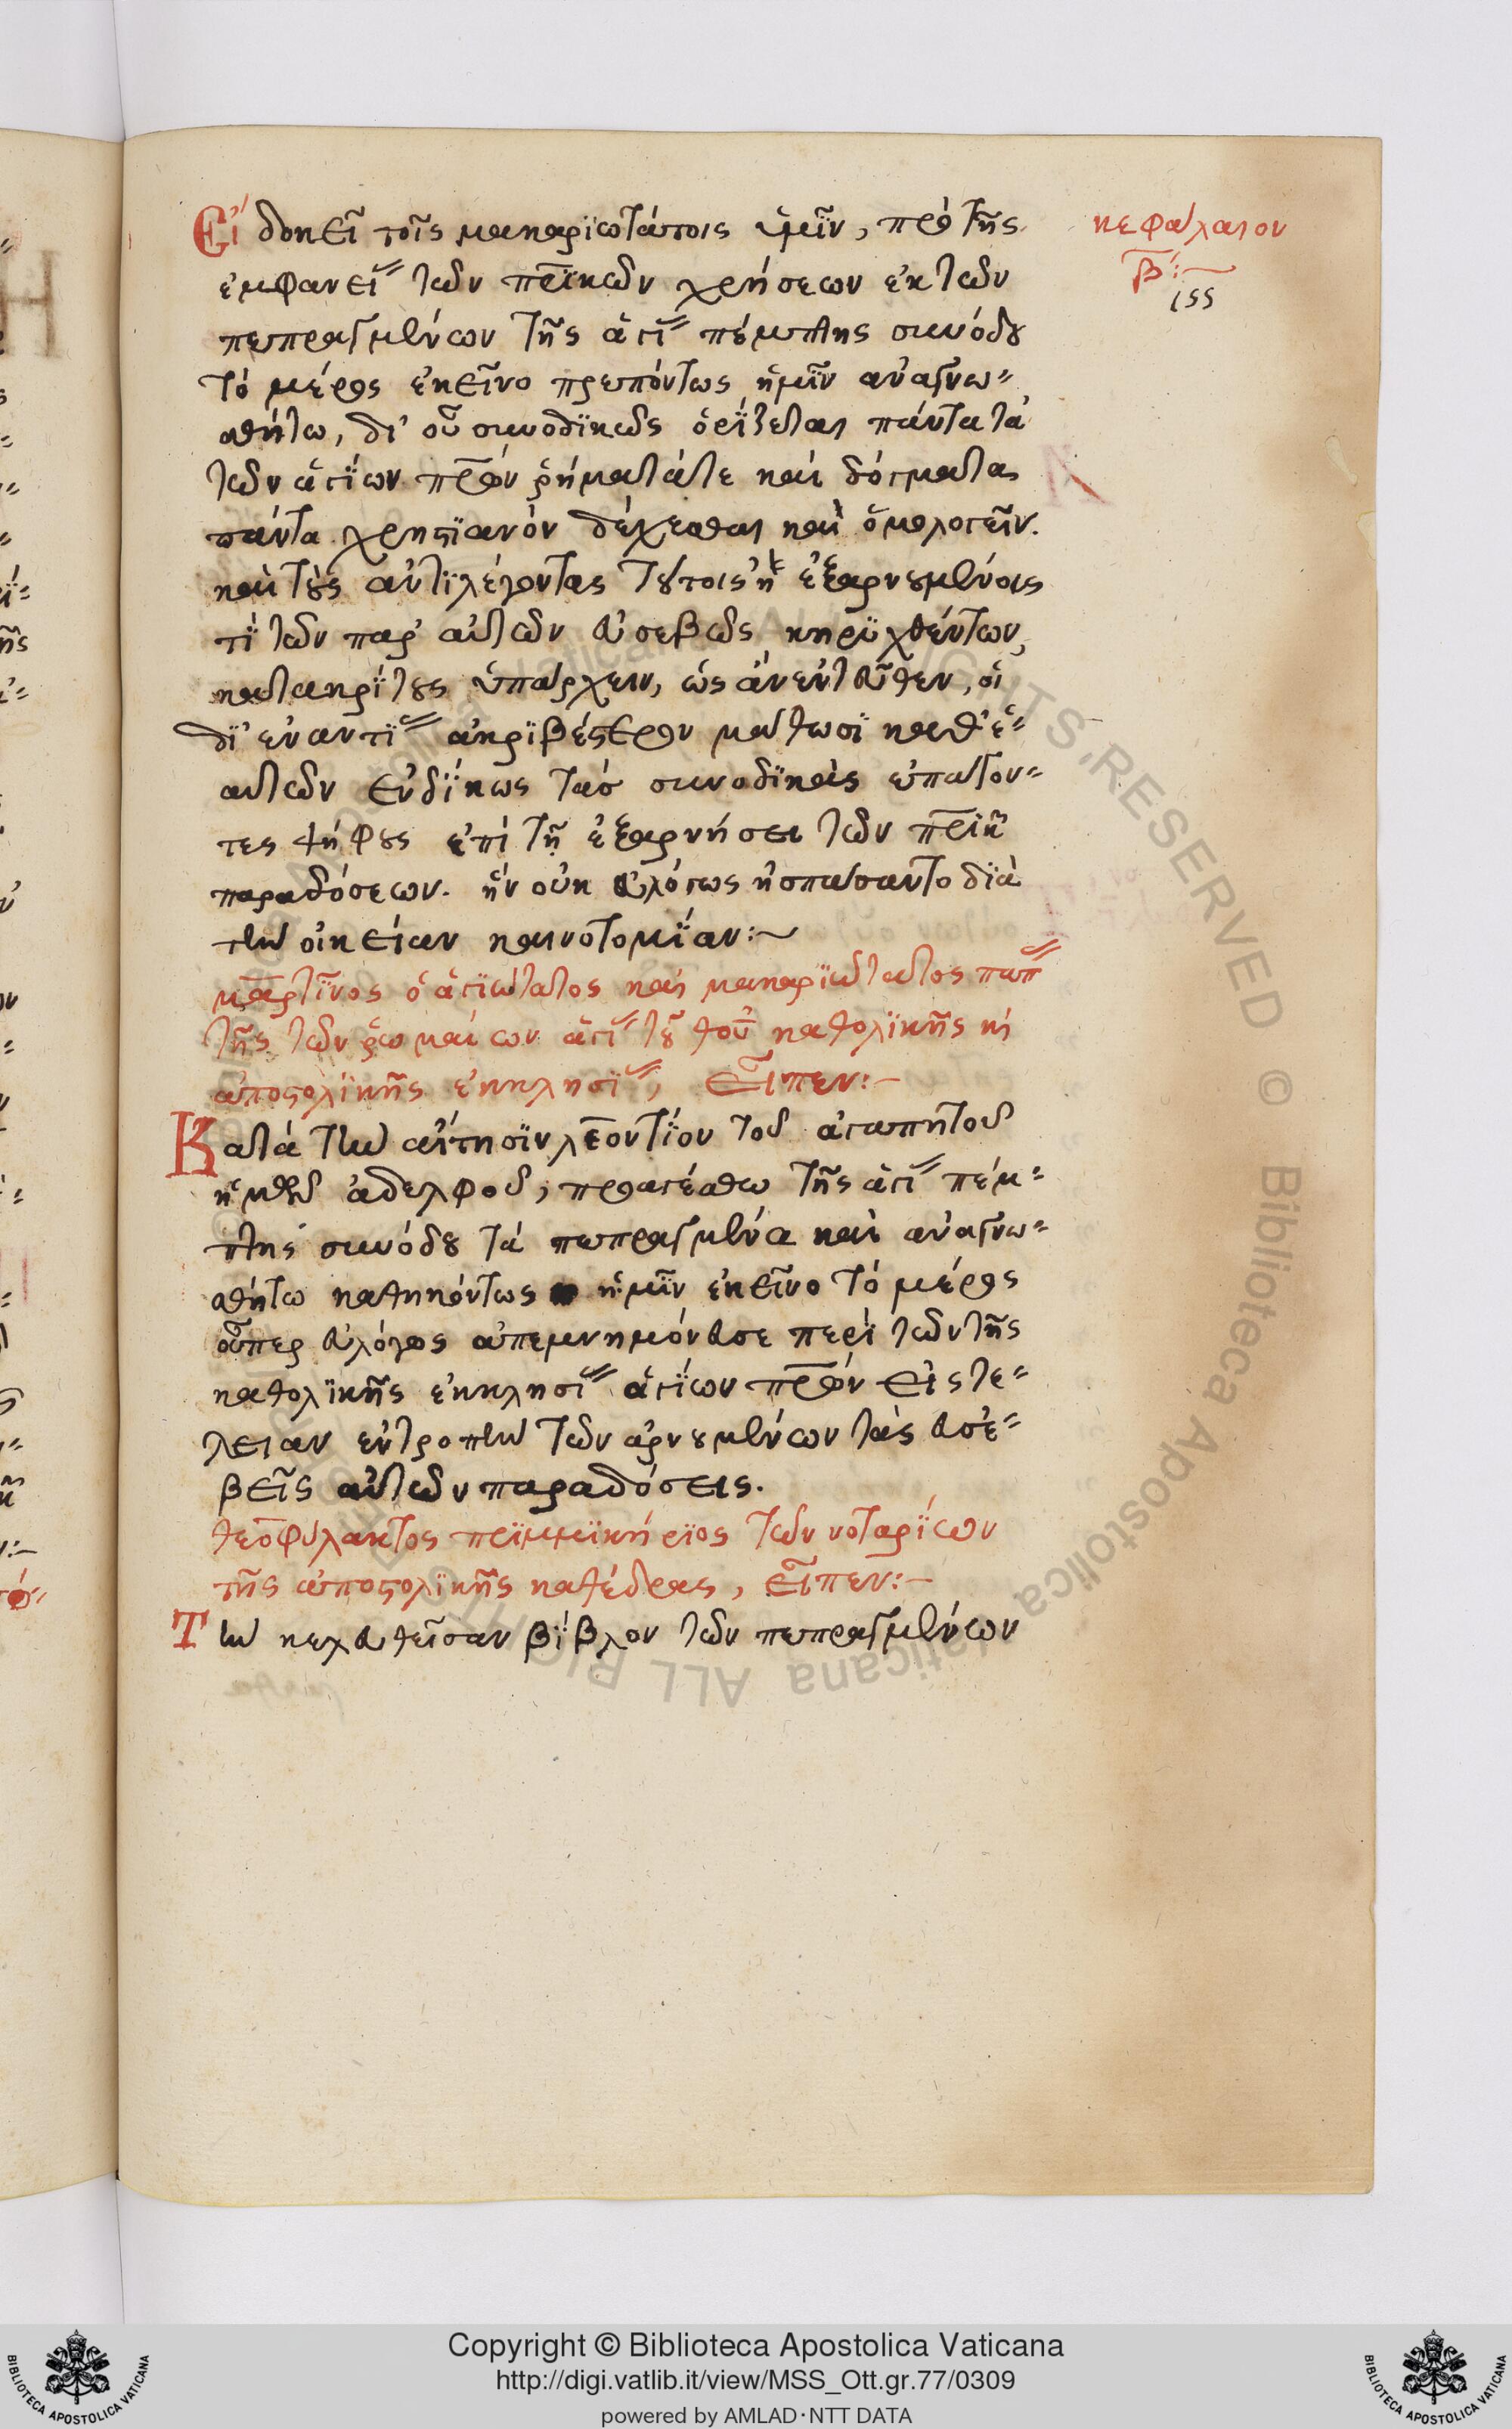 Εἰ δοκεῖ τοῖς μακαριωτάτοις ὑμῖν, πρὸ τῆς
κεφάλαιον
β:
155
ἐμφανεί// τῶν πρικῶν χρήσεων ἐκ τῶν
πεπραγμένων τῆς ἁγί// πέμπτης συνόδου
τὸ μέρος ἐκεῖνο πρεπόντως ἡμῖν ἀναγνω-
σθήτω, δι' οὗ συνοδϊκῶς ὁρίζεται πάντα τὰ
τῶν ἁγίων πρων ῥήματά τε καὶ δόγματα
πάντα χρηστϊανὸν δέχεσθαι καὶ ὁμολογεῖν.
καὶ τοὺς ἀντϊλέγοντας τούτοις ἢ ἐξαρνουμένοις
τϊ τῶν παρ' αὐτῶν εὐσεβῶς κηρϋχθέντων,
κατακρίτους ὑπάρχειν, ὡς ἂν ἐντεῦθεν, οἱ
δϊ' ἐναντί// ἀκρϊβέστερον μάθωσϊ καθ' ἑ-
αυτῶν ἐνδίκως τὰσ συνοδϊκὰς ἐπάγον-
τες ψήφους ἐπὶ τῇ ἐξαρνήσει τῶν πρικ
παραδόσεων. ἣν οὐκ εὐλόγως ἠσπάσαντο δϊὰ
τὴν οἰκείαν καινοτομίαν:~
μαρτῖνος ὁ ἁγϊώτατος καὶ μακαρϊώτατος πάπ//
τῆς τῶν ῥωμαίων ἁγί// τοῦ θεοῦ καθολϊκῆς κὶ
ἀποστολϊκῆς ἐκκλησί//, εἶπεν:-
Κατὰ τὴν αἴτησϊν λεοντίου τοῦ ἀγαπητοῦ
ἡμῶν ἀδελφοῦ, προαγέσθω τῆς ἁγί// πέμ-
πτης συνόδου τὰ πεπραγμένα καὶ ἀναγνω-
σθήτω καθηκόντως ἡμῖν ἐκεῖνο τὸ μέρος
οὗπερ εὐλόγως ἀπεμνημόνευσε περὶ τῶν τῆς
καθολϊκῆς ἐκκλησί// ἁγίων πρων εἰς τε-
λείαν ἐντροπὴν τῶν ἀρνουμένων τὰς εὐσε-
βεῖς αὐτῶν παραδόσεις.
θεοφύλακτος πρϊμμϊκήρϊος τῶν νοταρίων
τῆς ἀποστολϊκῆς καθέδρας, εἶπεν:-
Τὴν κελευθεῖσαν βίβλον τῶν πεπραγμένων
Copyright © Biblioteca Apostolica Vaticana
http://digi.vatlib.it/view/MSS_Ott.gr.77/0309
powered by AMLAD·NTT DATA